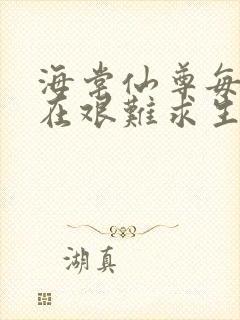 海棠仙尊每
在艰難求生
湖真